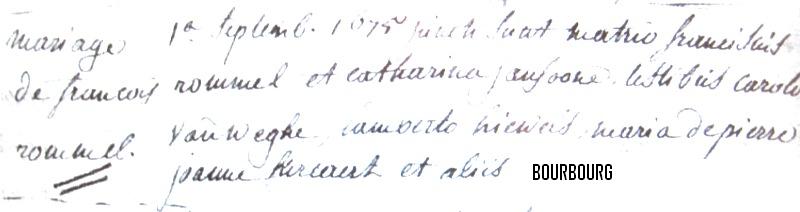 mariage
de francois
rommel.
1a septemb. 1675 juncti sunt matrio franciscus
rommel et catharina janssone testibus carolo
van weghe, lamberto nieweis, maria depierre
joanne kercaert et aliis
BOURBOURG